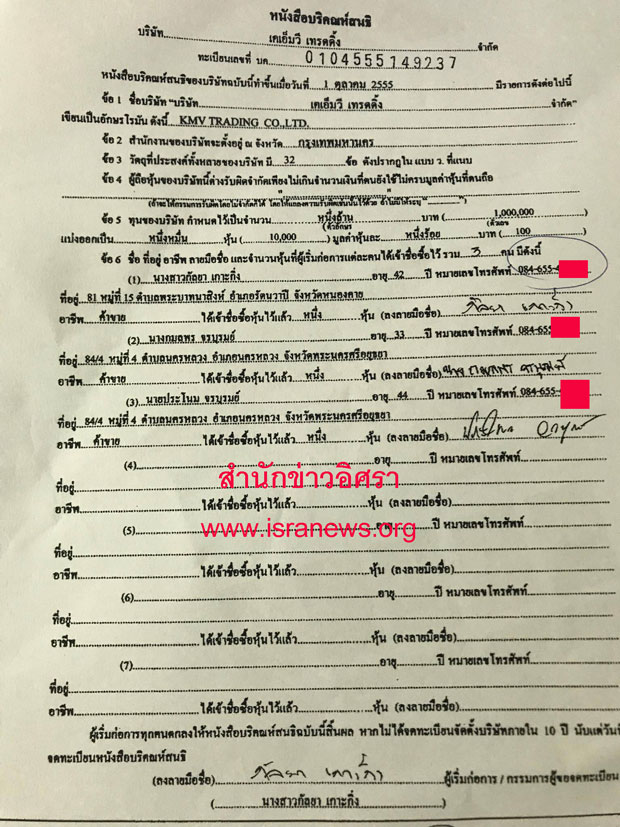 หนังสือบริคณห์สนธิ
บริษัท เคเอ็มวี เทรดดิ้ง จำกัด
ทะเบียนเลขที่ บค. 0104555149237
หนังสือบริคณห์สนธิของบริษัทฉบับนี้ทำขึ้นเมื่อวันที่ 1 ตุลาคม 2555 มีรายการดังต่อไปนี้
ข้อ 1 ชื่อบริษัท "บริษัท เคเอ็มวี เทรดดิ้ง จำกัด"
เขียนเป็นอักษรโรมัน ดังนี้ KMV TRADING CO.,LTD.
ข้อ 2 สำนักงานของบริษัทจะตั้งอยู่ ณ จังหวัด กรุงเทพมหานคร
ข้อ 3 วัตถุที่ประสงค์ทั้งหลายของบริษัท มี 32 ข้อ ดังปรากฏใน แบบ ว. ที่แนบ
ข้อ 4 ผู้ถือหุ้นของบริษัทนี้ต่างรับผิดจำกัดเพียงไม่เกินจำนวนเงินที่ตนยังใช้ไม่ครบมูลค่าหุ้นที่ตนถือ
ข้อ 5 ทุนของบริษัท กำหนดไว้เป็นจำนวน หนึ่งล้าน บาท ( 1,000,000 )
(ตัวอักษร) (ตัวเลข)
แบ่งออกเป็น หนึ่งหมื่น หุ้น ( 10,000 ) มูลค่าหุ้นละ หนึ่งร้อย บาท ( 100 )
ข้อ 6 ชื่อ ที่อยู่ อาชีพ ลายมือชื่อ และจำนวนหุ้นที่ผู้เริ่มก่อการแต่ละคนได้เข้าชื่อซื้อไว้ รวม 3 คน มีดังนี้
(1) นางสาวกัลยา เกาะกิ่ง อายุ 42 ปี หมายเลขโทรศัพท์ 084-655-
ที่อยู่ 81 หมู่ที่ 15 ตำบลพระบาทนาสิงห์ อำเภอรัตนวาปี จังหวัดหนองคาย
อาชีพ ค้าขาย ได้เข้าชื่อซื้อหุ้นไว้แล้ว หนึ่ง หุ้น (ลงลายมือชื่อ) กัลยา เกาะกิ่ง
(2) นางกมลพร จรบุรมย์ อายุ 33 ปี หมายเลขโทรศัพท์ 084-655
ที่อยู่ 84/4 หมู่ที่ 4 ตำบลนครหลวง อำเภอนครหลวง จังหวัดพระนครศรีอยุธยา
อาชีพ ค้าขาย ได้เข้าชื่อซื้อหุ้นไว้แล้ว หนึ่ง หุ้น (ลงลายมือชื่อ)
(3) นายประโนม จรบุรมย์ อายุ 44 ปี หมายเลขโทรศัพท์ 084-655-
ที่อยู่ 84/4 หมู่ที่ 4 ตำบลนครหลวง อำเภอนครหลวง จังหวัดพระนครศรีอยุธยา
อาชีพ ค้าขาย ได้เข้าชื่อซื้อหุ้นไว้แล้ว หนึ่ง หุ้น (ลงลายมือชื่อ)
(4) อายุ ปี หมายเลขโทรศัพท์
สำนักข่าวอิศรา
ที่อยู่
อาชีพ ได้เข้าชื่อซื้อหุ้นไว้แล้ว หุ้น (ลงลายมือชื่อ)
www.isranews.org
(5) อายุ ปี หมายเลขโทรศัพท์
ที่อยู่
อาชีพ ได้เข้าชื่อซื้อหุ้นไว้แล้ว หุ้น (ลงลายมือชื่อ)
(6) อายุ ปี หมายเลขโทรศัพท์
ที่อยู่
อาชีพ ได้เข้าชื่อซื้อหุ้นไว้แล้ว หุ้น (ลงลายมือชื่อ)
(7) อายุ ปี หมายเลขโทรศัพท์
ที่อยู่
อาชีพ ได้เข้าชื่อซื้อหุ้นไว้แล้ว หุ้น (ลงลายมือชื่อ)
ผู้เริ่มก่อการทุกคนตกลงให้หนังสือบริคณห์สนธิฉบับนี้สิ้นผล หากไม่ได้จดทะเบียนจัดตั้งบริษัทภายใน 10 ปี นับแต่วันที่
จดทะเบียนหนังสือบริคณห์สนธิ
(ลงลายมือชื่อ) กัลยา เกาะกิ่ง ผู้เริ่มก่อการ / กรรมการผู้ขอจดทะเบียน
( นางสาวกัลยา เกาะกิ่ง )